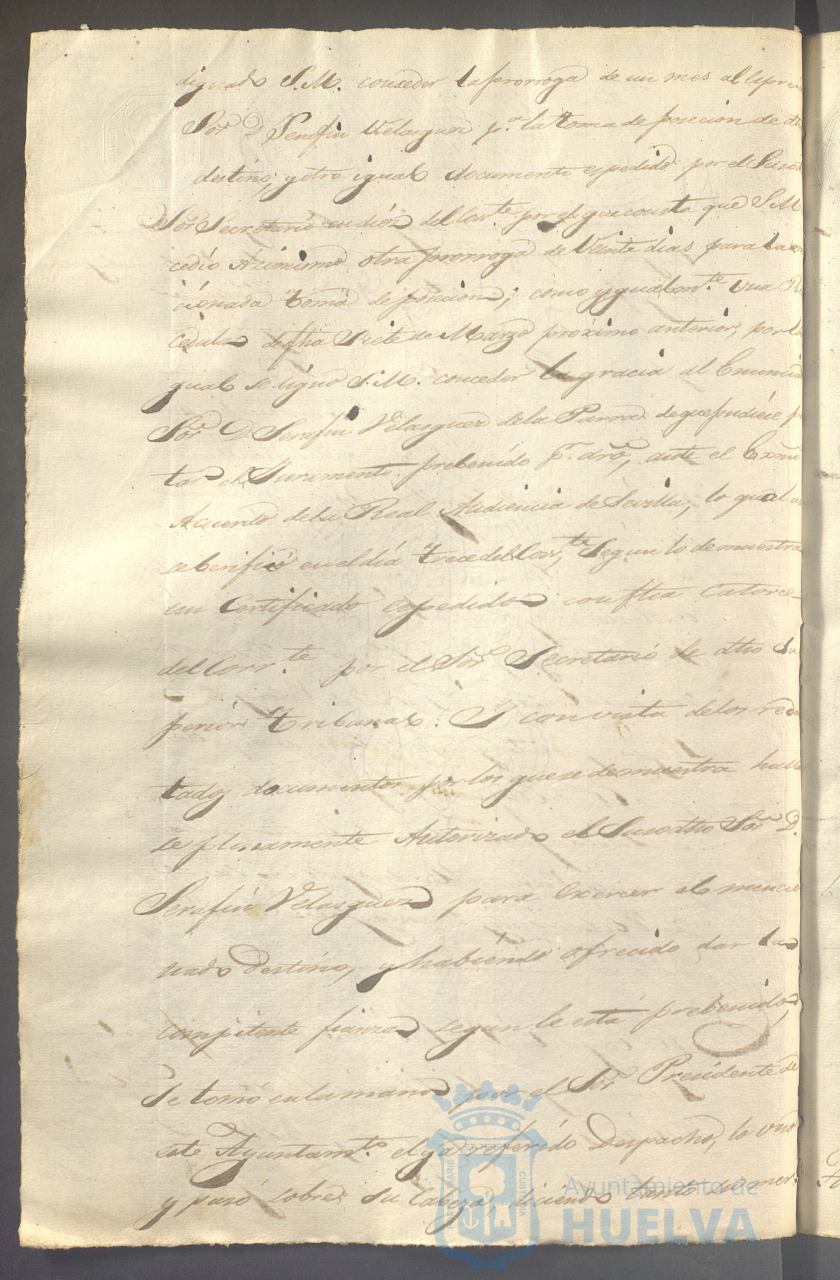 dignado S.M. conceder la prorroga de un mes al
Sor. D. Serafin Velazquez pa. la toma de posecion de
destino, y otro igual documento espedido por el
Sor. Secretario en dies del Corrte. por el que consta que S.M.
cedió Acimismo otra prorroga de Veinte dias para la
cionada toma de posecion; como ygualmte. una R
Cedula dfha Siete de Marzo proximo anterior, por la
qual se digno S.M. conceder la gracia al Enuncia
Sor. D. Serafin Velazquez de la Parra de que pudiese p
tar el Juramento prebenido pr. dro, ante el Exmo
Acuerdo de la Real Audiencia de Sevilla, lo qual
se berifió en el día trece del Corrte. Segun lo demuestra
un Certificado espedido con fha Catorce
del Corrte. por el Sor. Secretario de dho Su
perior Tribunal. Y con vista de los rela
tados documentos por los que se demuestra haver
se plenamente Autorizado el Susodho Sor. D.
Serafin Velazquez para Exercer el mencio
nado Destino, y habiendo ofrecido dar la
competente fianza segun le está prebenido,
Se tomó en la mano por el Sor. Presidente de
este Ayuntamto. el ya referido Despacho, lo vesó
y pusó sobre su Cabeza, diciendo
Ayuntamiento de
HUELVA